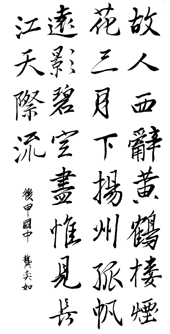 故人西辭黃鶴樓煙
花三月下揚州孤帆
遠影碧空盡惟見長
江天際流
後甲國中 龔奕如